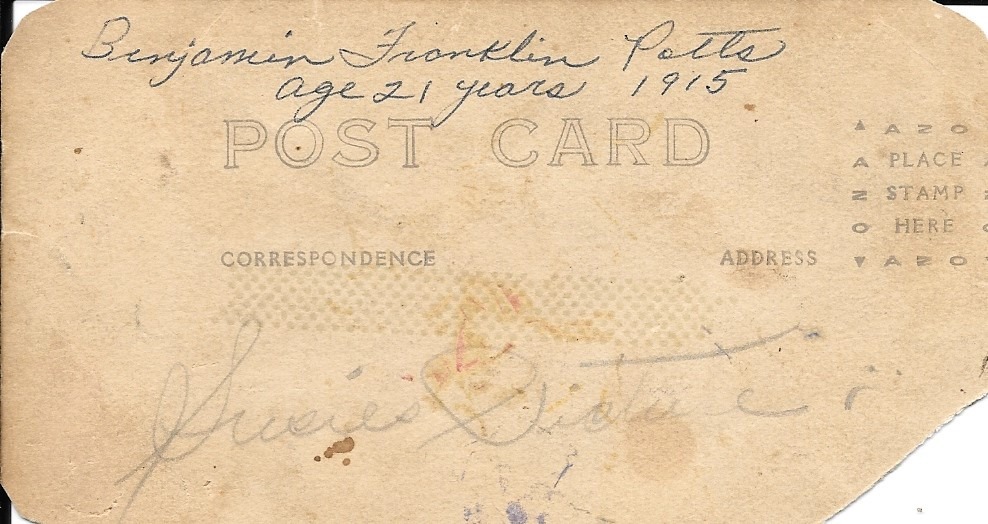 Benjamin Franklin Potts
age 21 years 1915
POST CARD
▲ A Z O
A PLACE A
N STAMP N
O HERE O
▼ A Z O ▼
CORRESPONDENCE ADDRESS
Susies